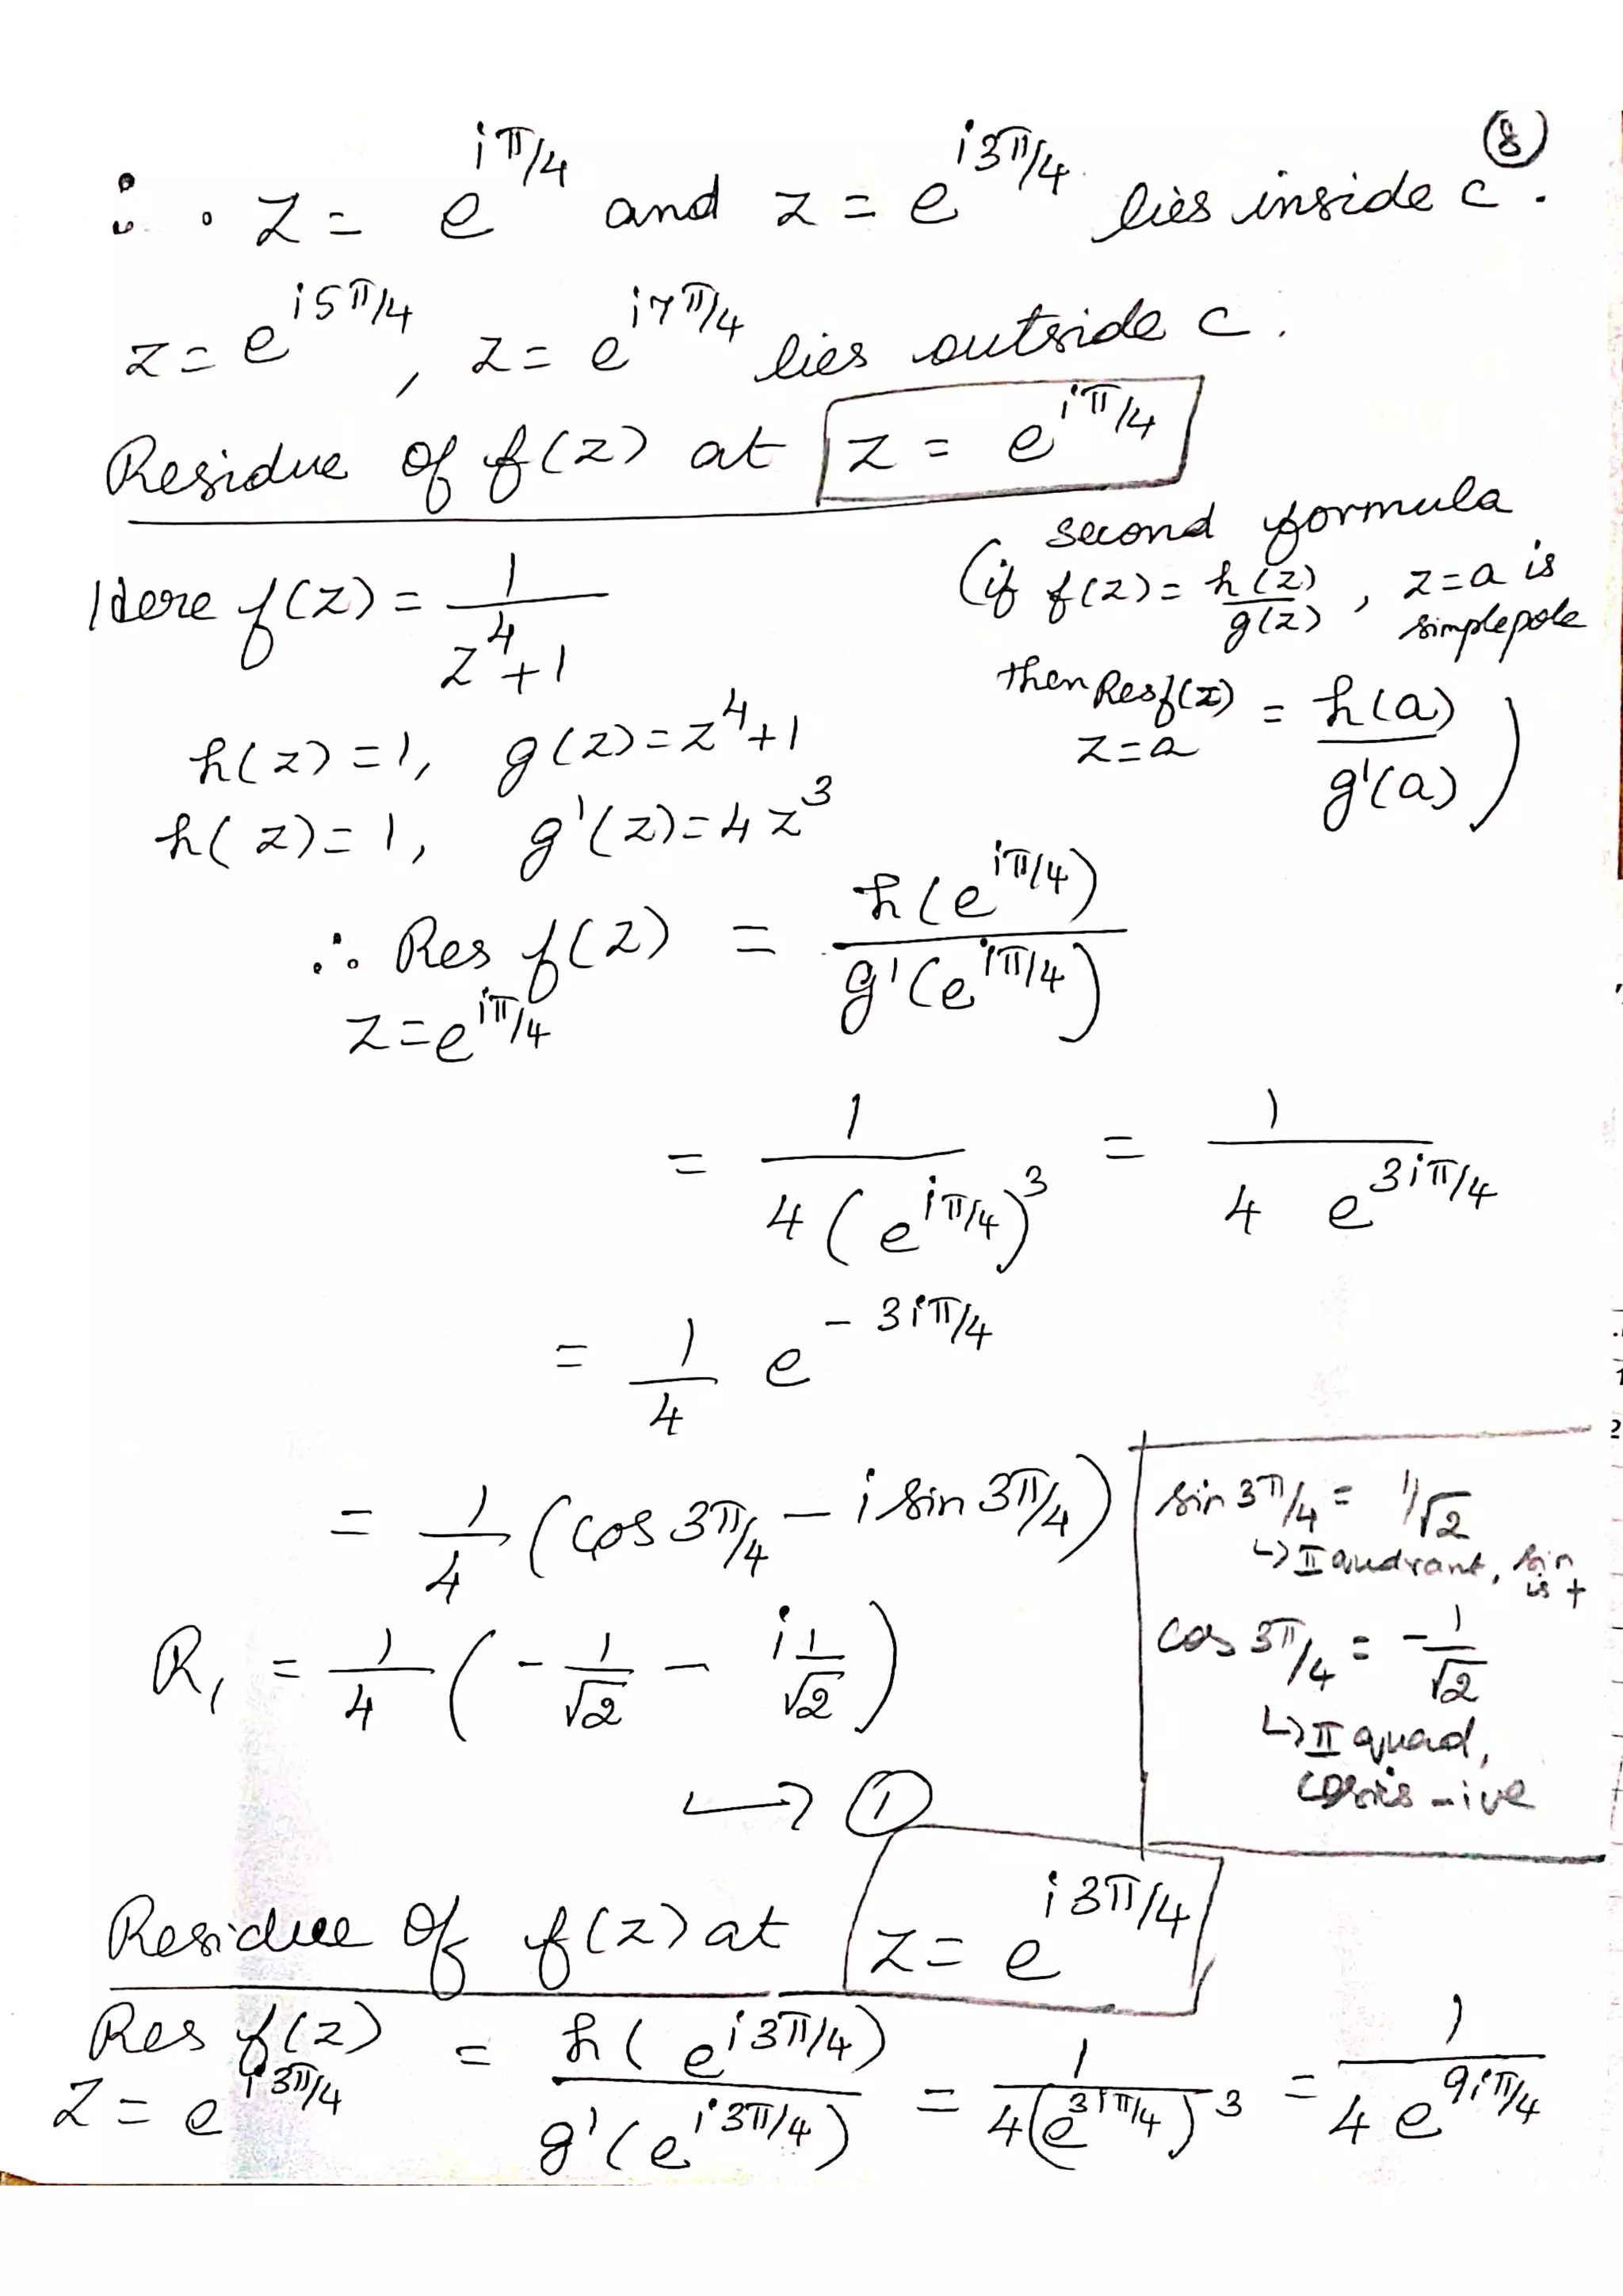 ⑧
∴ z = e^{iπ/4} and z = e^{i3π/4} lies inside c.
z = e^{i5π/4}, z = e^{i7π/4} lies outside c.
Residue of f(z) at z = e^{iπ/4}
second formula
(if f(z) = h(z)/g(z), z=a is simple pole
then Res f(z) z=a = h(a)/g'(a))
Here f(z) = 1/(z^4+1)
h(z) = 1, g(z) = z^4+1
h(z) = 1, g'(z) = 4z^3
∴ Res f(z) z=e^{iπ/4} = h(e^{iπ/4})/g'(e^{iπ/4})
= 1/(4(e^{iπ/4})^3) = 1/(4 e^{3iπ/4})
= 1/4 e^{-3iπ/4}
= 1/4 (cos 3π/4 - i sin 3π/4)
sin 3π/4 = 1/√2
↳ II quadrant, sin is +
cos 3π/4 = -1/√2
↳ II quad,
cos is -ive
R₁ = 1/4 (-1/√2 - i 1/√2)
↳ ①
Residue of f(z) at z = e^{i3π/4}
Res f(z) z = e^{i3π/4} = h(e^{i3π/4})/g'(e^{i3π/4}) = 1/(4(e^{3iπ/4})^3) = 1/(4 e^{9iπ/4})